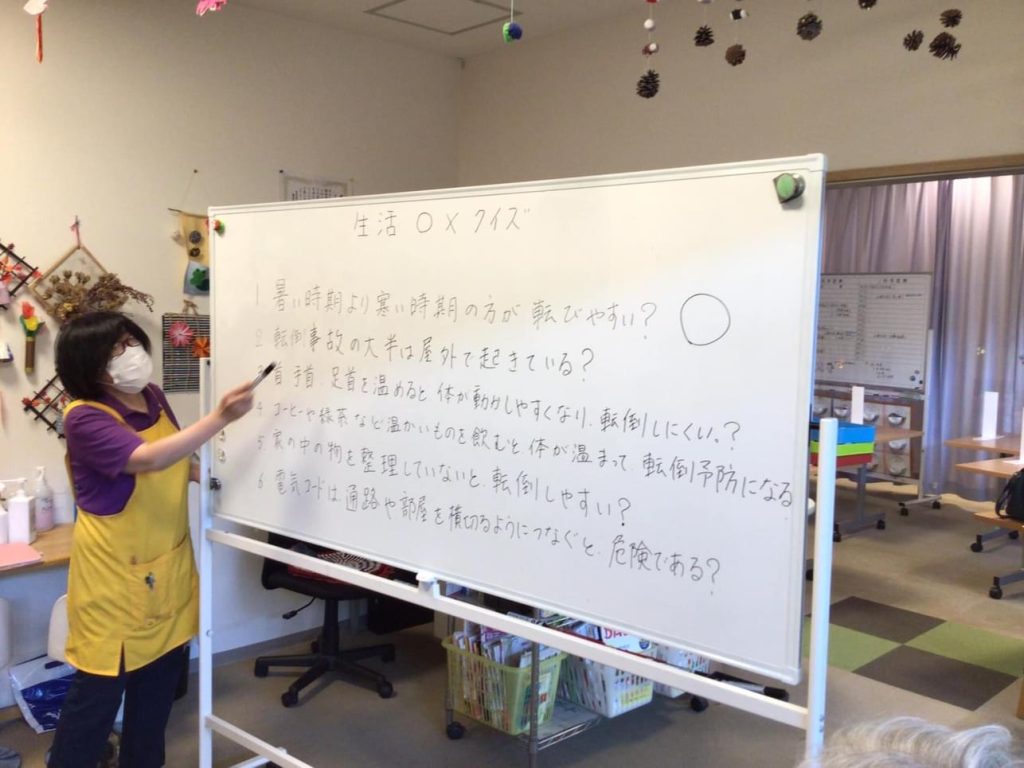 生活 ○×クイズ
1 暑い時期より寒い時期の方が転びやすい? ○
2 転倒事故の大半は屋外で起きている?
3 首、手首、足首を温めると、体が動かしやすくなり、転倒しにくい。?
4 コーヒーや緑茶など温かいものを飲むと、体が温まって、転倒予防になる
5 家の中の物を整理していないと、転倒しやすい?
6 電気コードは、通路や部屋を横切るようにつなぐと、危険である?